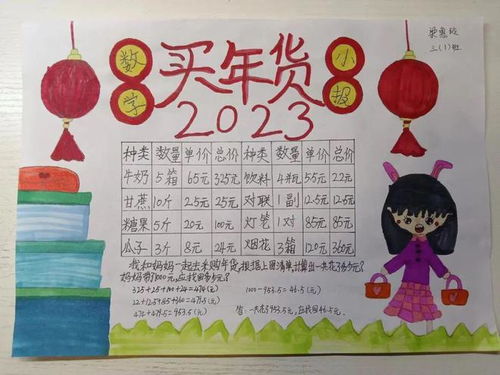 数学
小报
梁惠班
三(1)班
买年货
2023
种类 数量 单价 总价 种类 数量 单价 总价
牛奶 5箱 65元 325元 饮料 4瓶 5.5元 22元
甘蔗 10斤 2.5元 25元 对联 1副 12.5元 12.5元
糖果 5斤 20元 100元 灯笼 1对 85元 85元
瓜子 3斤 8元 24元 烟花 3箱 120元 360元
我和妈妈一起去采购年货,根据上面清单,计算出一共花了多少元?
妈妈带1000元,应找回多少元?
325+25+100+24=474(元)
1000-953.5=46.5(元)
22+12.5+85+360=479.5(元)
474+479.5=953.5(元)
答:一共花了953.5元,应找回46.5元.